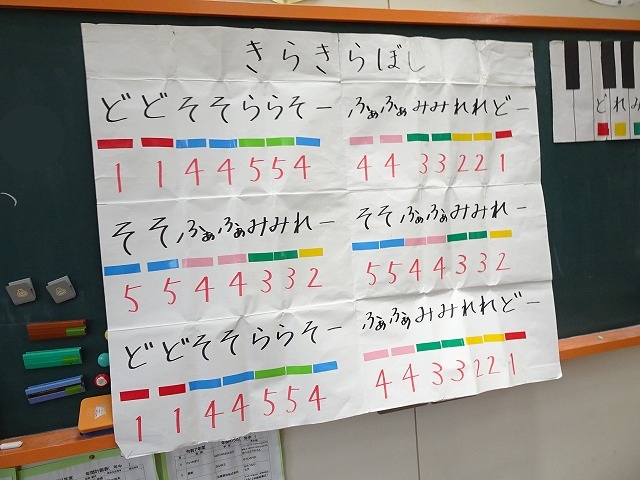 きらきらぼし
どどそそららそー
1 1 4 4 5 5 4
ふぁふぁみみれれどー
4 4 3 3 2 2 1
そそふぁふぁみみれー
5 5 4 4 3 3 2
そそふぁふぁみみれー
5 5 4 4 3 3 2
どどそそららそー
1 1 4 4 5 5 4
ふぁふぁみみれれどー
4 4 3 3 2 2 1
どれみ